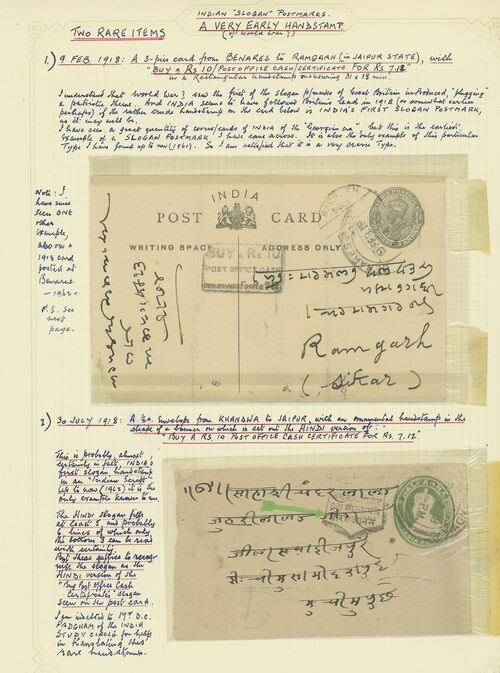 INDIAN "SLOGAN" POSTMARKS.
TWO RARE ITEMS
A VERY EARLY HANDSTAMP
(of World War I)
1.) 9 FEB 1918: A 3-pies card from BENARES to RAMGARH (in JAIPUR STATE), with
"BUY A Rs 10/ POST OFFICE CASH/CERTIFICATE FOR Rs 7.12"
in a Rectangular handstamp measuring 31 x 18 mm.
I understand that World War I saw the first of the slogan p/marks of Great Britain introduced, "plugging"
a patriotic theme. And INDIA seems to have followed Britain's lead in 1918 (or somewhat earlier
perhaps) if the rather crude handstamp on the card below is INDIA'S FIRST SLOGAN POSTMARK,
as it may well be.
I have seen a great quantity of covers/cards of INDIA of the "Georgian era" but this is the earliest
example of a SLOGAN POSTMARK I have come across. It is also the only example of this particular
Type I have found up to now (1961). So I am satisfied that it is a very scarce Type.
Note: I
have since
seen ONE
other
example,
also on a
1918 card
posted at
Benares.
-1962-
P.S. See
next
page.
INDIA
POST CARD
WRITING SPACE
ADDRESS ONLY
BUY A Rs 10
POST OFFICE CASH
Ramgarh
(Sikar)
2) 30 JULY 1918: A ½a. Envelope from KHANDWA to JAIPUR, with an ornamental handstamp in the
shape of a banner on which is set out the HINDI version of:
"BUY A RS. 10 POST OFFICE CASH CERTIFICATE FOR Rs. 7.12"
This is probably, almost
certainly in fact, INDIA'S
first slogan handstamp
in an "Indian Script"
Up to now (1962) it is the
only example known to me.
The HINDI slogan fills
at least 5 and probably
6 lines of which only
the bottom 3 can be read
with certainty.
But these suffice to recog-
nise the slogan as the
HINDI version of the
"Buy Post Office Cash
Certificates" slogan
seen on the post card.
I am indebted to Mr D.C.
PADGHAM of the INDIA
STUDY CIRCLE for help
in translating this
rare handstamp.